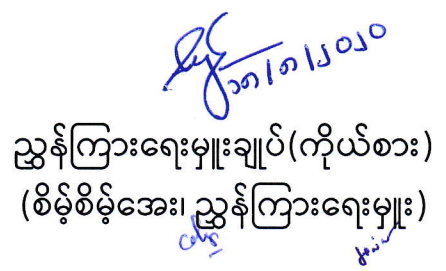 ၁၈/၈/၂၀၂၀
ညွှန်ကြားရေးမှူးချုပ်(ကိုယ်စား)
(စိမ့်စိမ့်အေး၊ ညွှန်ကြားရေးမှူး)